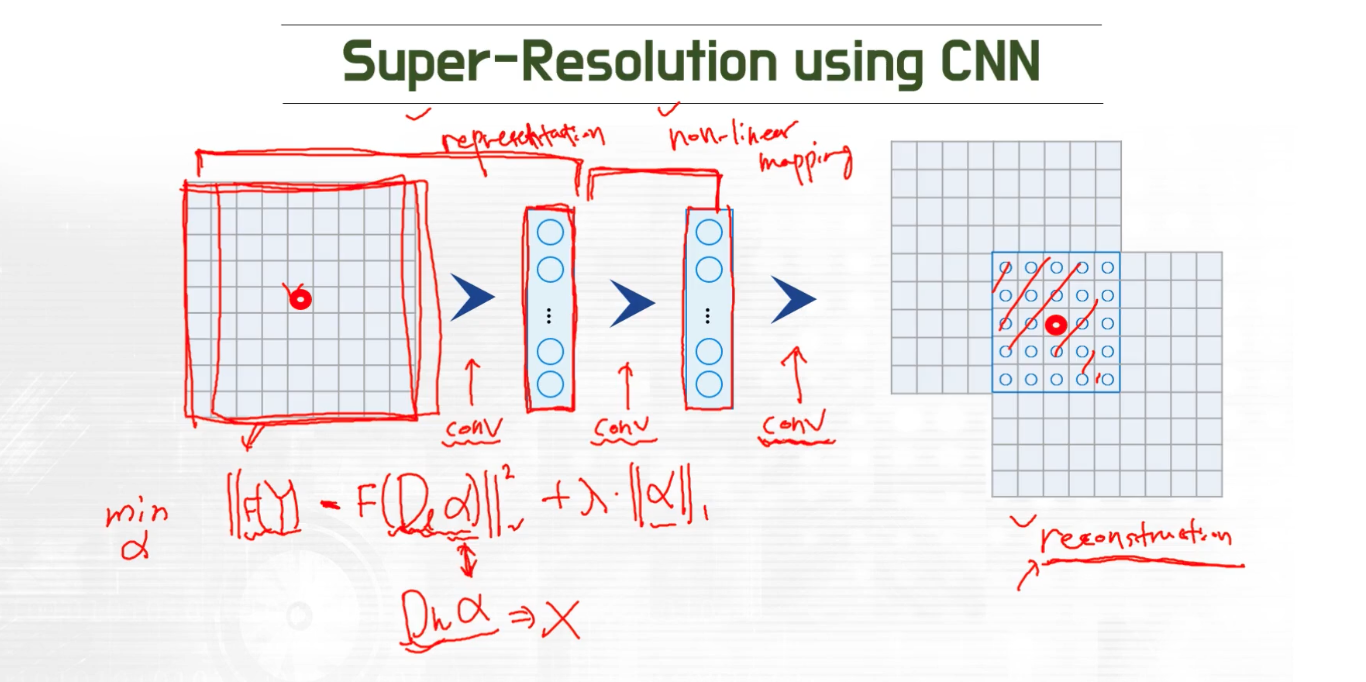 Super-Resolution using CNN
representation
non-linear
mapping
conv
conv
conv
min
α
||F(Y) - F(Dₗα)||₂² + λ·||α||₁
Dhα ⇒ X
reconstruction